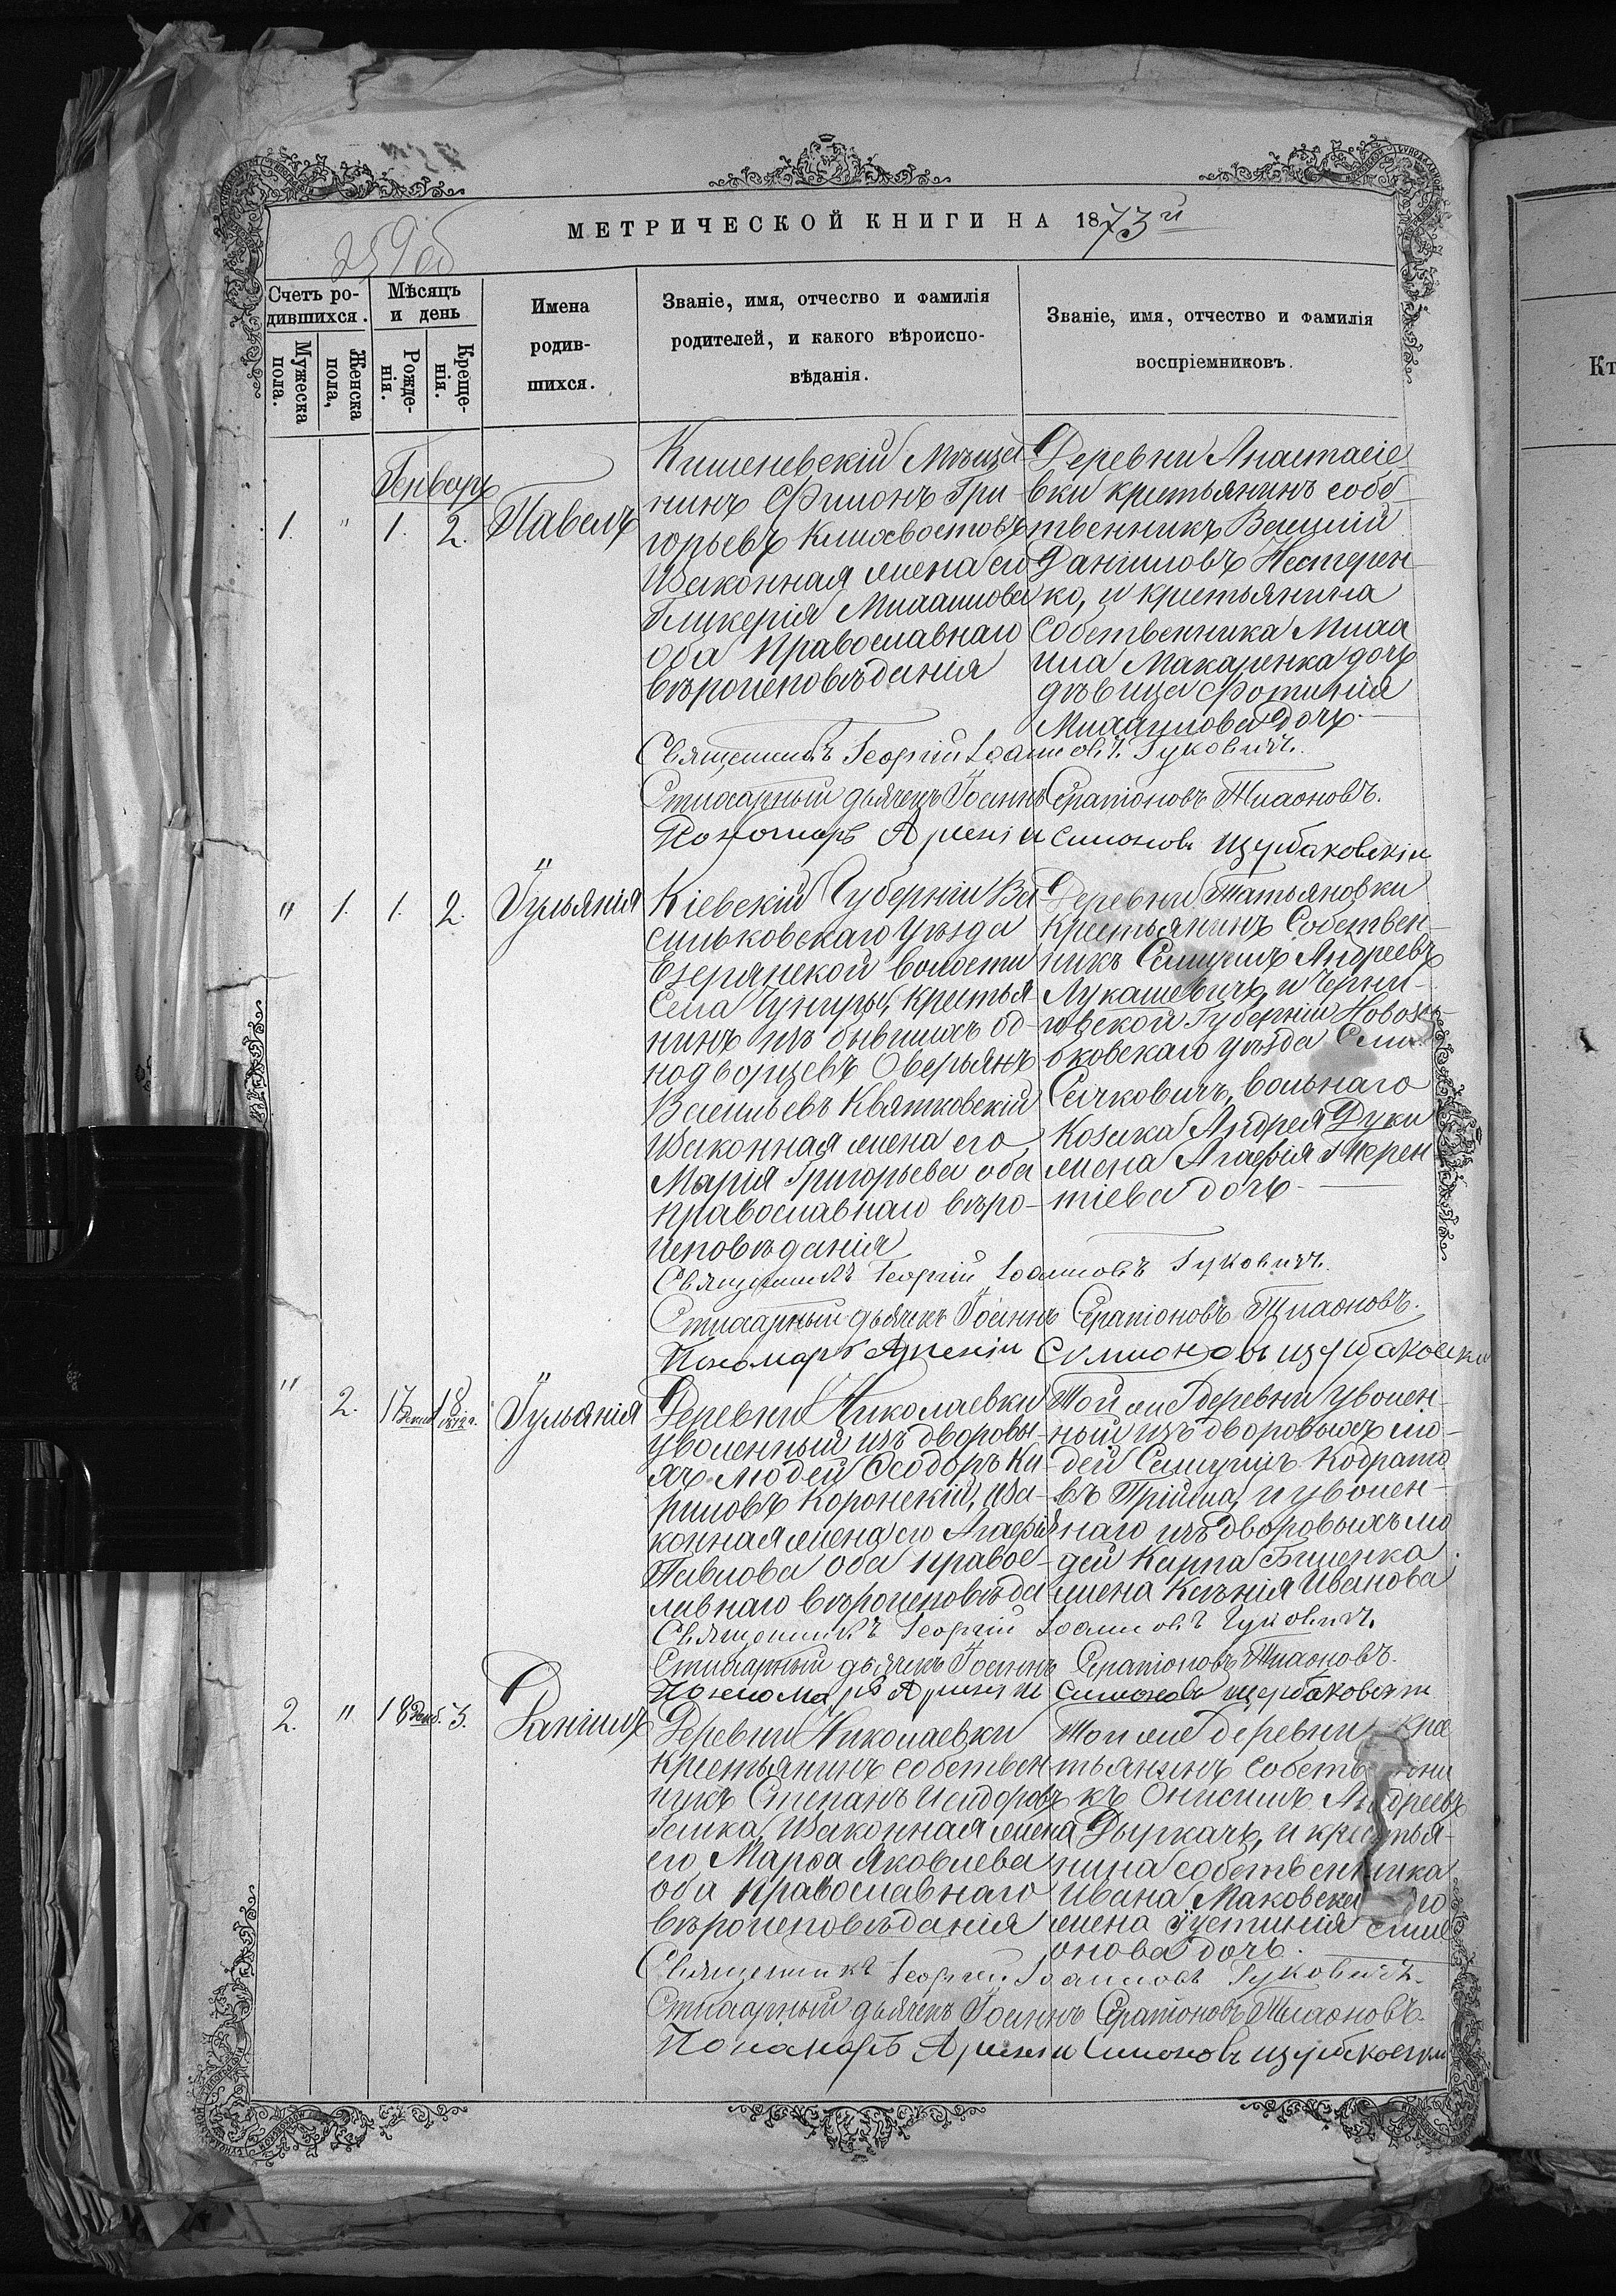 259об
МЕТРИЧЕСКОЙ КНИГИ НА 1873й
Счетъ ро-
дившихся.
Мужеска
пола.
Женска
пола,
Мѣсяцъ
и день
Рожде-
нія.
Креще-
нія.
Имена
родив-
шихся.
Званіе, имя, отчество и фамилія
родителей, и какого вѣроиспо-
вѣданія.
Званіе, имя, отчество и фамилія
воспріемниковъ.
Генворь
1. " 1. 2. Павелъ
Кишеневскій Мѣща
нинъ Филионъ Гри-
горьевъ
Изаконная жена его
Гликерія Михаилова
оба православнаго
вѣроисповѣданія
Деревни Анастасіе
вки крестьянинъ собс
твенникъ Василій
Даніиловъ Нестерен
ко, и крестьянина
собственника Миха
ила Макаренка дочь
дѣвица Фотинія
Михаилова дочь.
Священникъ Георгій Іоанновъ Гуковичъ.
Стихарный дьячекъ Іоаннъ Серапіоновъ Тихоновъ.
Пономарь Арсеній Симоновъ Щербаковскій
" 1. 1. 2. Іульянія
Кіевскій Губерніи Ва
сильковскаго уѣзда
Езерянской волости
села Чупиры, крестья
нинъ изъ бывшихъ од-
нодворцевъ Оверьянъ
Васильевъ Квятковскій
Изаконная жена его
Марія Григорьева оба
православнаго вѣро-
исповѣданія
Деревни Татьяновки
крестьянинъ Собствен-
никъ Самуилъ Андреевъ
Лукашевичъ, и Черни-
говской Губерніи Новозы
бковскаго уѣзда
Сачковичъ, вольнаго
Козака Андрея Дуки
жена Агафія Терен
тіева дочь.
Священникъ Георгій Іоанновъ Гуковичъ.
Стихарный дьячекъ Іоаннъ Серапіоновъ Тихоновъ.
Пономарь Арсеній Симионовъ Щербаковскій
" 2. 17 18 1872г. Іульянія
Деревни Николаевки
уволенный изъ дворовы-
хъ людей Ѳеодоръ Ки-
риловъ Коронскій, Иза-
конная жена его Агафія
Павлова оба правос-
лавнаго вѣроисповѣда
Той же деревни уволен-
ный изъ дворовыхъ лю-
дей Самуилъ Кодрато
въ Прійма, и уволен-
наго изъ дворовыхъ лю
дей Карпа Биленка
жена Ксѣнія Иванова
Священникъ Георгій Іоанновъ Гуковичъ.
Стихарный дьячекъ Іоаннъ Серапіоновъ Тихоновъ.
Пономарь Арсеній Симоновъ Щербаковскій
2. " 18 Декб. 3. Даніилъ
Деревни Николаевки
крестьянинъ собствен
никъ Степанъ Исидоровъ
Изаконная жена
его Марѳа Яковлева
оба православнаго
вѣроисповѣданія
Той же деревни крес
тьянинъ собственни
къ Онисимъ Андреевъ
Дыркачъ, и крестья-
нина собственника
Ивана Маковска го
жена Іустинія Сими
онова дочь.
Священникъ Георгій Іоанновъ Гуковичъ.
Стихарный дьячекъ Іоаннъ Серапіоновъ Тихоновъ.
Пономарь Арсеній Симоновъ Щербаковскій
Кт